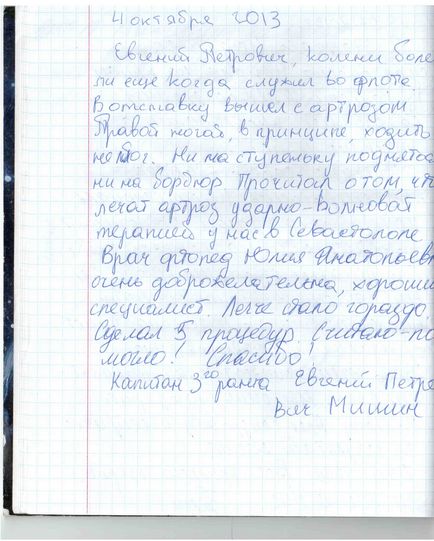 4 октября 2013
Евгений Петрович, колени боле
ли еще когда служил во флоте.
В отставку вышел с артрозом
Правой ногой, в принципе, ходить
не мог. Ни на ступеньку поднятся
ни на бордюр. Прочитал о том, чт
лечат артроз ударно-волновой
терапией у нас в Севастополе
Врач ортопед Юлия Анатольевн
очень доброжелательна, хороши
специалист. Легче стало гораздо.
Сделал 5 процедур. Считаю-по
могло! Спасибо!
Капитан 3го ранга Евгений Петро
вич Мишин